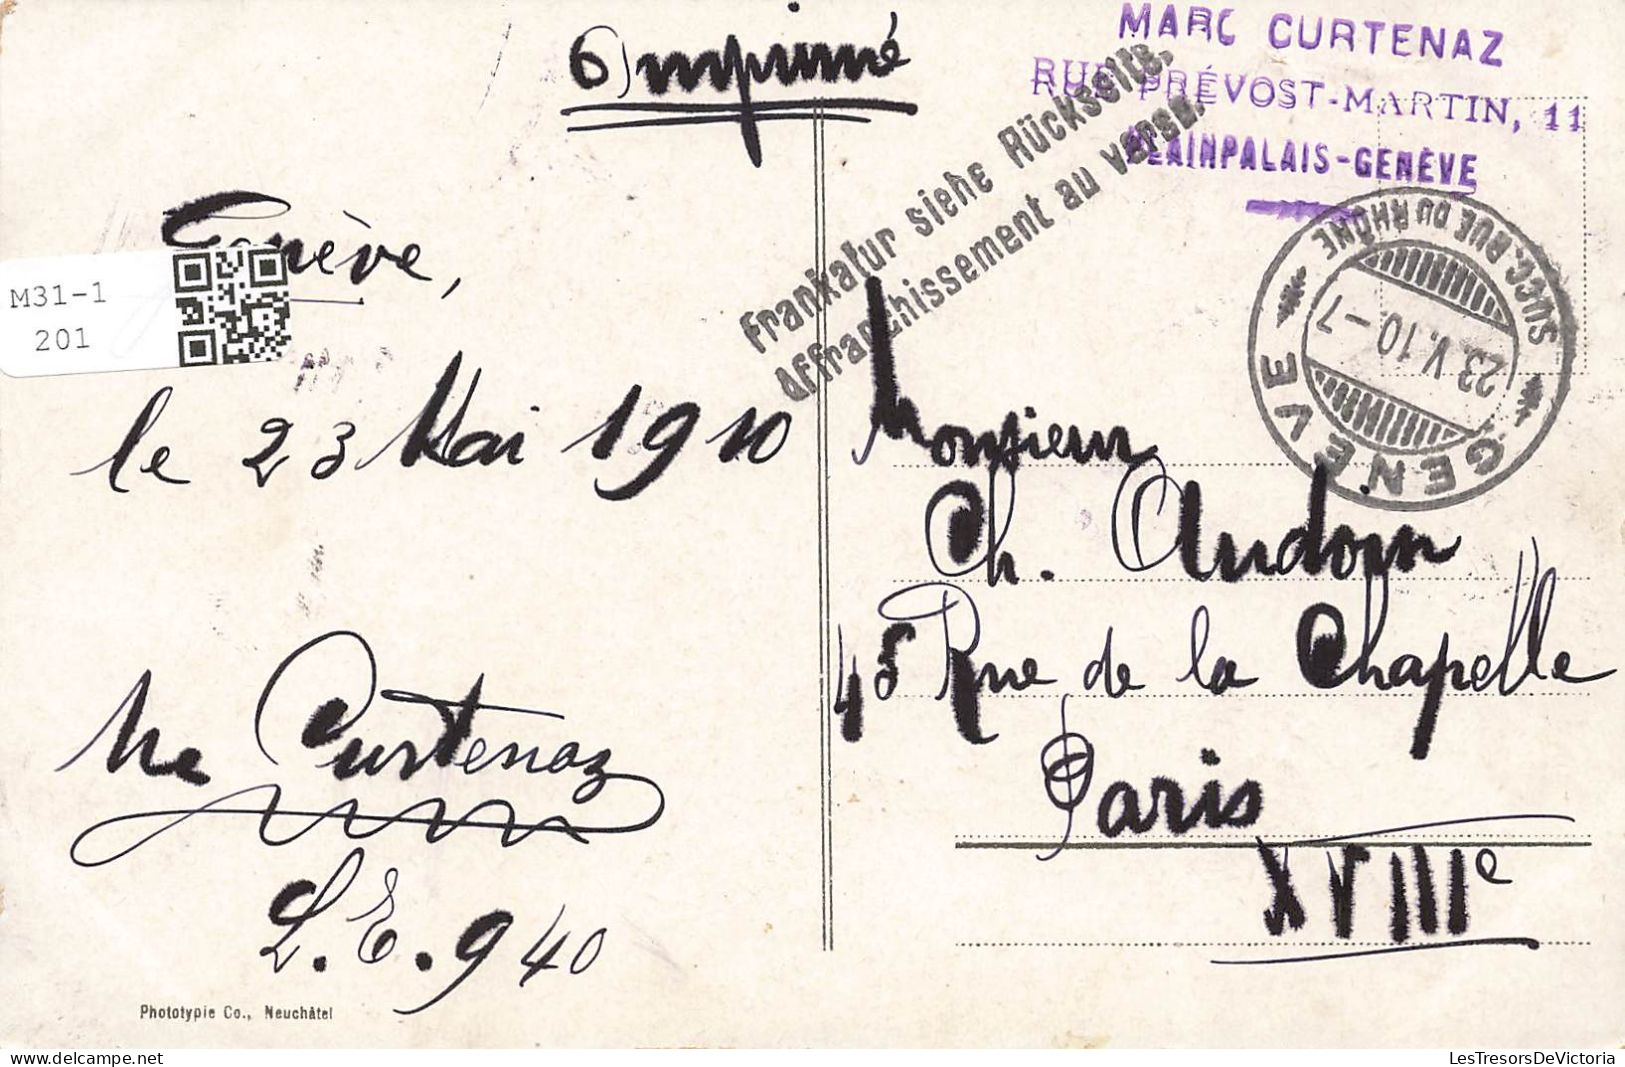 6) Imprimé
MARC CURTENAZ
RUE PRÉVOST-MARTIN, 11
PLAINPALAIS-GENÈVE
Frankatur siehe Rückseite.
Affranchissement au verso.
GENÈVE
SUCC. RUE DU RHÔNE
23.V.10.-7
Genève,
M31-1
201
le 23 Mai 1910
Monsieur
Ch. Audoin
45 Rue de la Chapelle
Paris
XVIIIe
Mc Curtenaz
L.E. 940
Phototypie Co., Neuchâtel
LesTresorsDeVictoria